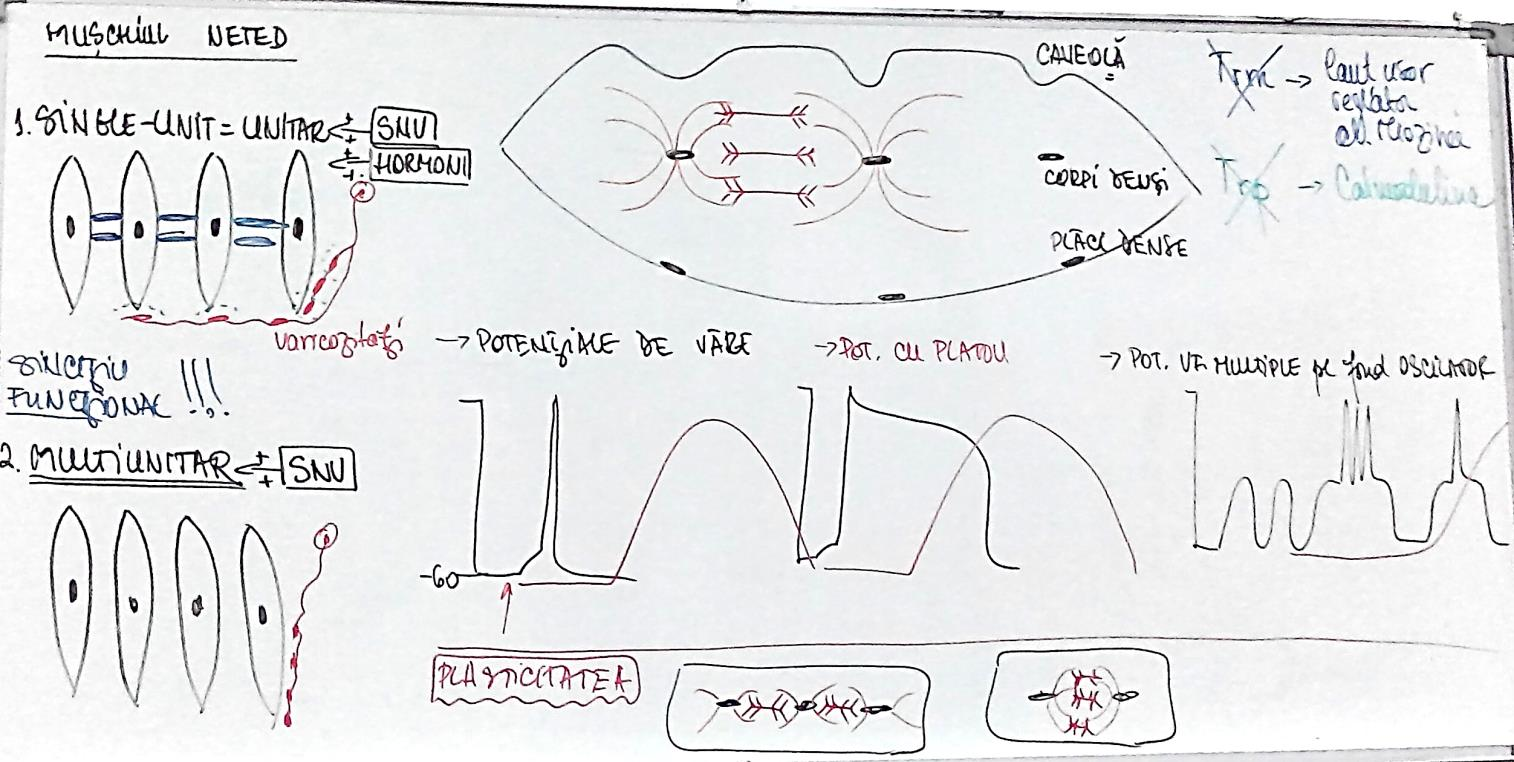 MUȘCHIUL NETED
1. SINGLE-UNIT = UNITAR ← + + SNV
← + + HORMONI
varicozități
SINCIȚIU
FUNCȚIONAL !!!
2. MULTIUNITAR ← + + SNV
CAVEOLĂ
CORPI DENȘI
PLĂCI DENSE
Trm → lanț ușor
reglator
al. Miozinei
Trp → Calmodulina
→ POTENȚIALE DE VÂRF
→ POT. CU PLATOU
→ POT. VF. MULTIPLE pe fond OSCILATOR
-60
PLASTICITATEA